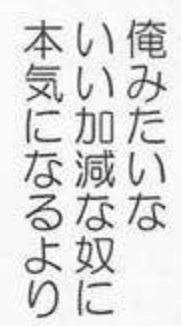 俺みたいな
いい加減な奴に
本気になるより